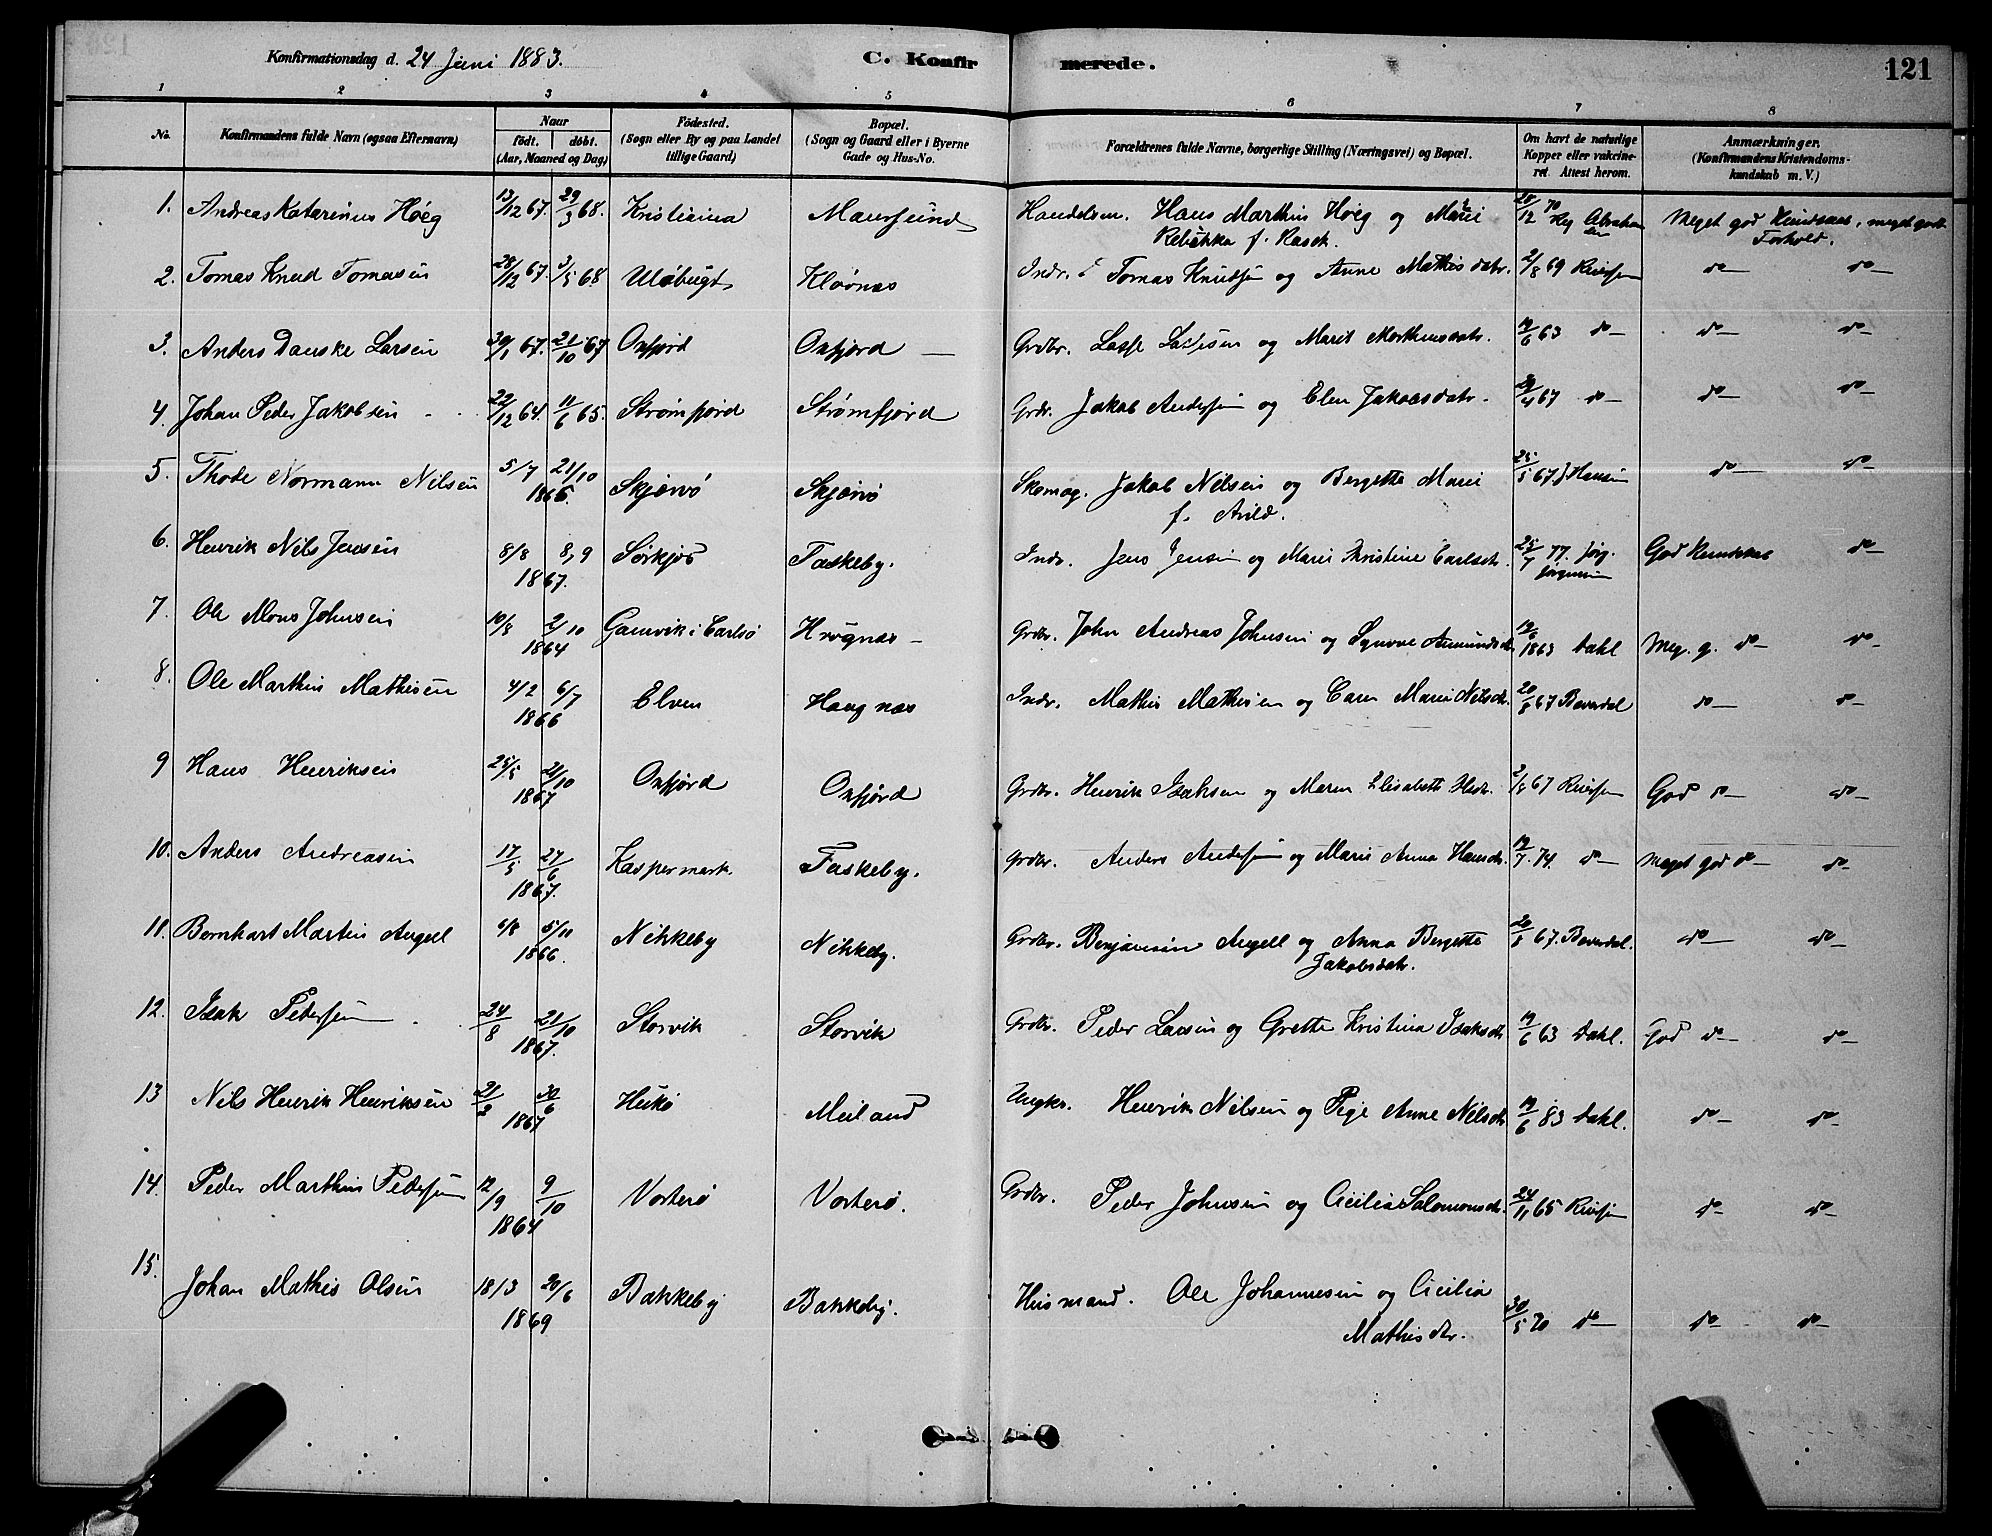 Konfirmationsdag d. 24 Juni 1883. C. Konfirmerede. 121
1 2 3 4 5 6 7 8
No. Konfirmandens fulde Navn (ogsaa Efternavn) Naar født. døbt. (Aar, Maaned og Dag) Fødested. (Sogn eller By og paa Landet tillige Gaard) Bopæl. (Sogn og Gaard eller i Byerne Gade og Hus-No. Forældrenes fulde Navne, borgerlige Stilling (Næringsvei) og Bopæl. Om havt de naturlige Kopper eller vakcineret. Attest herom. Anmærkninger. (Konfirmandens Kristendomskundskab m. V.)
1. Andreas Katarinus Höeg 13/12 67. 29/3 68. Kristiania Maursund Handelsm. Hans Marthin Höeg og Marie 20/12 70 Meget god Kundskab, meget godt
Rebekka f. Rasch. Forhold.
2. Tomas Knud Tomasen 28/12 67. 3/5 68. Uløbugt Kloönes Indr. Tomas Knudsen og Anne Mathisdatr. 2/8 69 do do
3. Anders Danske Larsen 30/1 67. 21/10 67 Oxfjord Oxfjord Grdbr. Lasse Lassesen og Marit Morthensdatr. 19/6 63 do do do
4. Johan Peder Jakobsen 22/12 64. 11/6 65. Strømfjord Strømfjord Grdr. Jakob Andersen og Elen Jakobsdatr. 29/4 67 do do do
5. Thode Normann Nilsen 5/7 21/10 1866 Skjærvö Skjærvö Skomag. Jakob Nilsen og Bergette Marie 25/5 67. Hansen do do
f. Arild.
6. Henrik Nils Jensen 8/8 8,9 1867. Sørkjos Taskeby. Indr. Jens Jensen og Marie Kristine Carlsdr. 25/7 77. Jörg. Jörgensen God Kundskab do
7. Ole Mons Johnsen 10/8 2/10 1864 Gamvik i Carlsö Haugnæs Grdbr. John Andreas Johnsen og Synove Amundsdr. 19/6 1863 Dahl Meg. g. do do
8. Ole Marthin Mathisen 4/2 6/7 1866 Elven Haugnæs Indr. Mathis Mathisen og Caren Marie Nilsdr. 20/8 67 Baverdal do do
9 Hans Henriksen 25/5 21/10 1867 Oxfjord Oxfjord Grdbr. Henrik Isaksen og Maren Elisabeth Hsdr. 2/8 67 God do do
10. Anders Andreasen 17/5 27/6 1867. Kaspermark. Taskeby. Grdbr. Anders Andersen og Marie Anna Hansdr. 19/7. 74. do Meget god do do
11. Bernhart Martin Angell 6/8 5/11 1866. Nikkeby Nikkeby. Grdbr. Benjamin Angell og Anna Bergette 20/8 67. Baverdal. do do
Jakobsdatr.
12. Isak Pedersen 24/8 21/10 1867. Storvik Storvik Grdbr. Peder Larsen og Grette Kristina Isaksdr. 19/6 63 Dahl. God do do
13 Nils Henrik Henriksen 21/2 30/6 1867 Hukö Meiland Ungkr. Henrik Nilsen og Pige Anne Nilsdr. 19/6 83 Dahl. do do
14. Peder Marthin Pedersen 12/9 9/10 1864 Vorterö Vorterö. Grdbr. Peder Johnsen og Cicilia Salomonsdr. 24/11 65 do do
15. Johan Mathis Olsen 18/3 20/6 1869 Bakkeby Bakkeby. Husmand. Ole Johannesen og Cicilia
Mathisdr. 30/5 70 do do do